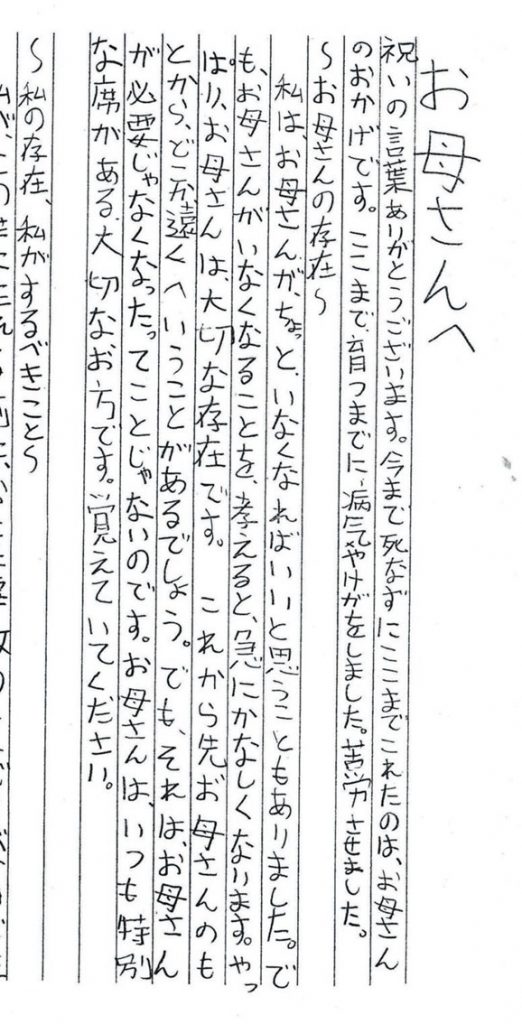 お母さんへ
祝いの言葉ありがとうございます。今まで死なずにここまでこれたのは、お母さん
のおかげです。ここまで、育つまでに、病気やけがをしました。苦労させました。
～お母さんの存在～
私は、お母さんが、ちょっと、いなくなればいいと思うこともありました。で
も、お母さんがいなくなることを、考えると、急にかなしくなります。やっ
ぱり、お母さんは、大切な存在です。これから先お母さんのも
とから、どこか遠くへいうことがあるでしょう。でも、それは、お母さん
が必要じゃなくなったってことじゃないのです。お母さんは、いつも特別
な席がある、大切なお方です。覚えていてください。
～私の存在、私がするべきこと～